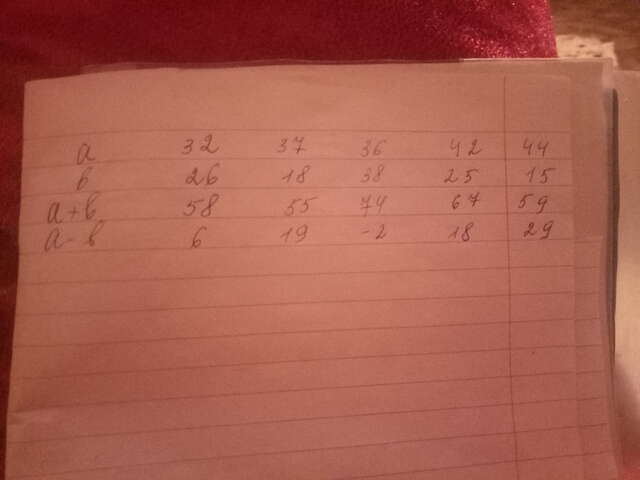 a 32 37 36 42 44
b 26 18 38 25 15
a+b 58 55 74 67 59
a-b 6 19 -2 18 29